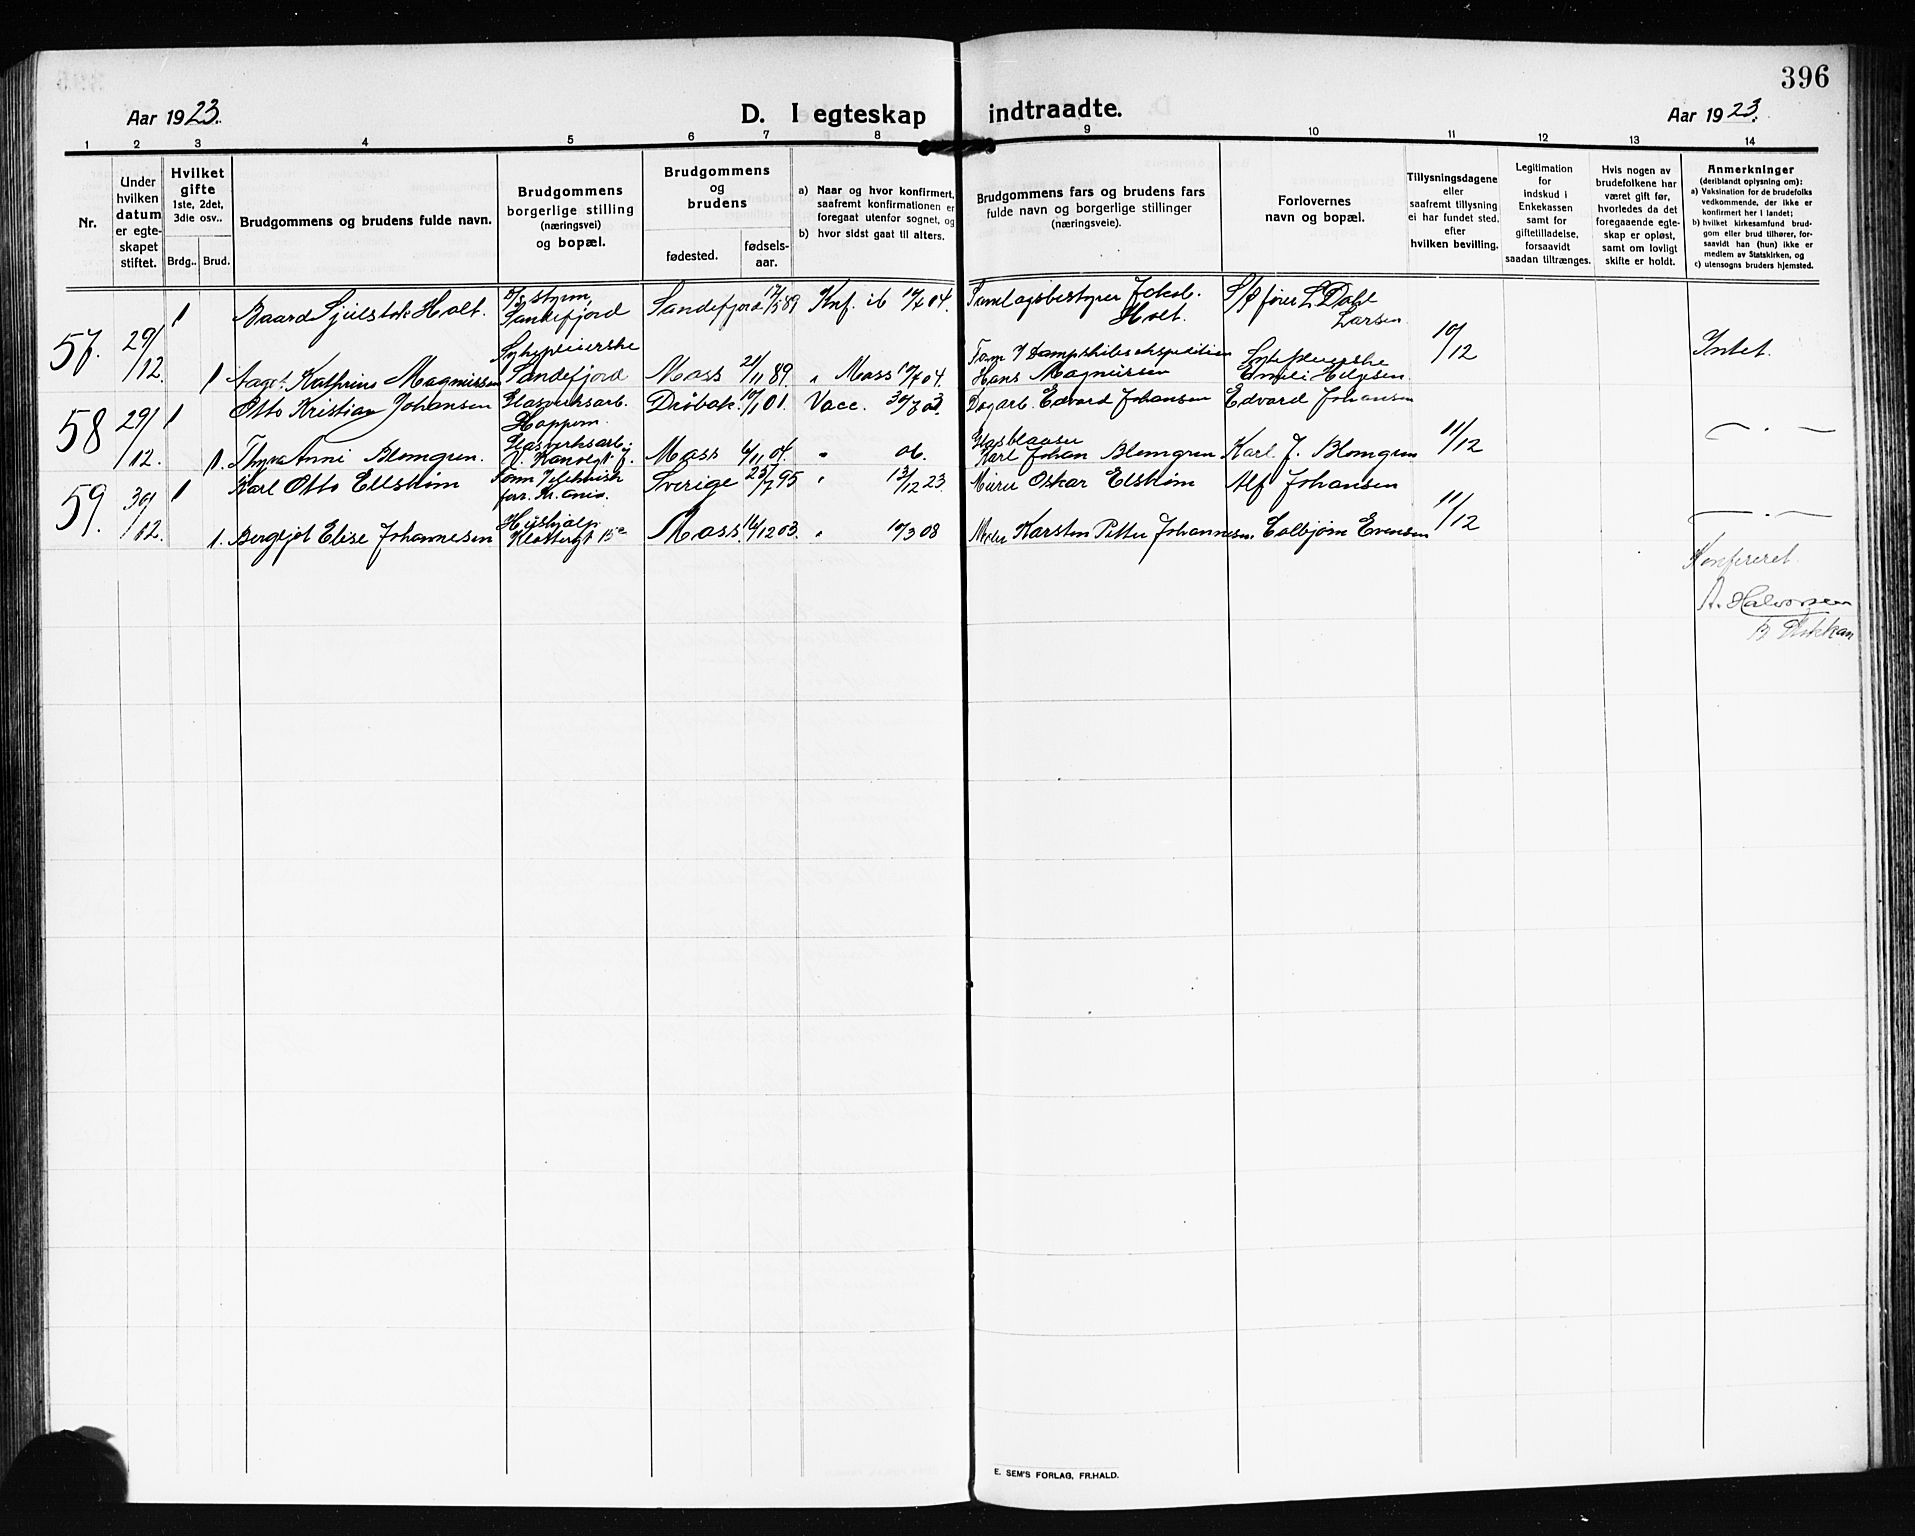 396
Aar 1923.
D. I egteskap indtraadte.
Aar 1923.
1 2 3 4 5 6 7 8 9 10 11 12 13 14
Nr.
Under hvilken datum er egteskapet stiftet.
Hvilket gifte 1ste, 2det, 3die osv..
Brdg.. Brud.
Brudgommens og brudens fulde navn.
Brudgommens borgerlige stilling (næringsvei) og bopæl.
Brudgommens og brudens
fødested.
fødsels-aar.
a) Naar og hvor konfirmert, saafremt konfirmationen er foregaat utenfor sognet, og
b) hvor sidst gaat til alters.
Brudgommens fars og brudens fars fulde navn og borgerlige stillinger (næringsveie).
Forlovernes navn og bopæl.
Tillysningsdagene eller saafremt tillysning ei har fundet sted, efter hvilken bevilling.
Legitimation for indskud i Enkekassen samt for giftetilladelse, forsaavidt saadan tiltrænges.
Hvis nogen av brudefolkene har været gift før, hvorledes da det foregaaende egteskap er opløst, samt om lovligt skifte er holdt.
Anmerkninger (deriblandt oplysning om):
a) Vaksination for de brudefolks vedkommende, der ikke er konfirmert her i landet;
b) hvilket kirkesamfund brudgom eller brud tilhører, forsaavidt han (hun) ikke er medlem av Statskirken, og
c) utensogns bruders hjemsted.
57. 29/12. 1 Baard Holt. styrm. Sandefjord Sandefjord 17/5 89 Knf. ib 04. Jakob Holt. S/s fører L Dahl Larsen 10/12 Intet.
1 Aagot Kathrine Magnussen Sykepleierske Sandefjord Moss 21/11 89. " Moss 04. Form. i Dampskibsekspedition Hans Magnussen Sykepleierske Emeli Helgesen.
58 29/12. 1 Otto Kristian Johansen Glasverksarb. Hoppern. Drøbak 01. Vacc. 30/8 03 Edvard Johansen Edvard Johansen 11/12 — " —
1. Thyra Anni Blomgren. Glasverksarb. Moss 6/11 04. " 06. Glasblaaser Karl Johan Blomgren Karl J. Blomgren
59. 30/12. 1 Karl Otto Ellstrøm Sverige 23/7 95 " 13/12 23 Murer Oskar Elstrøm Alf Johansen 11/12 — " —
1. Bergljot Elise Johannesen Hushjælp Klostergt 15a Moss. 16/12 03. " 08 Karsten Petter Johannesen. Colbjørn Evensen
Konfereret.
A. Halvorsen
E. SEM'S FORLAG, FR.HALD.